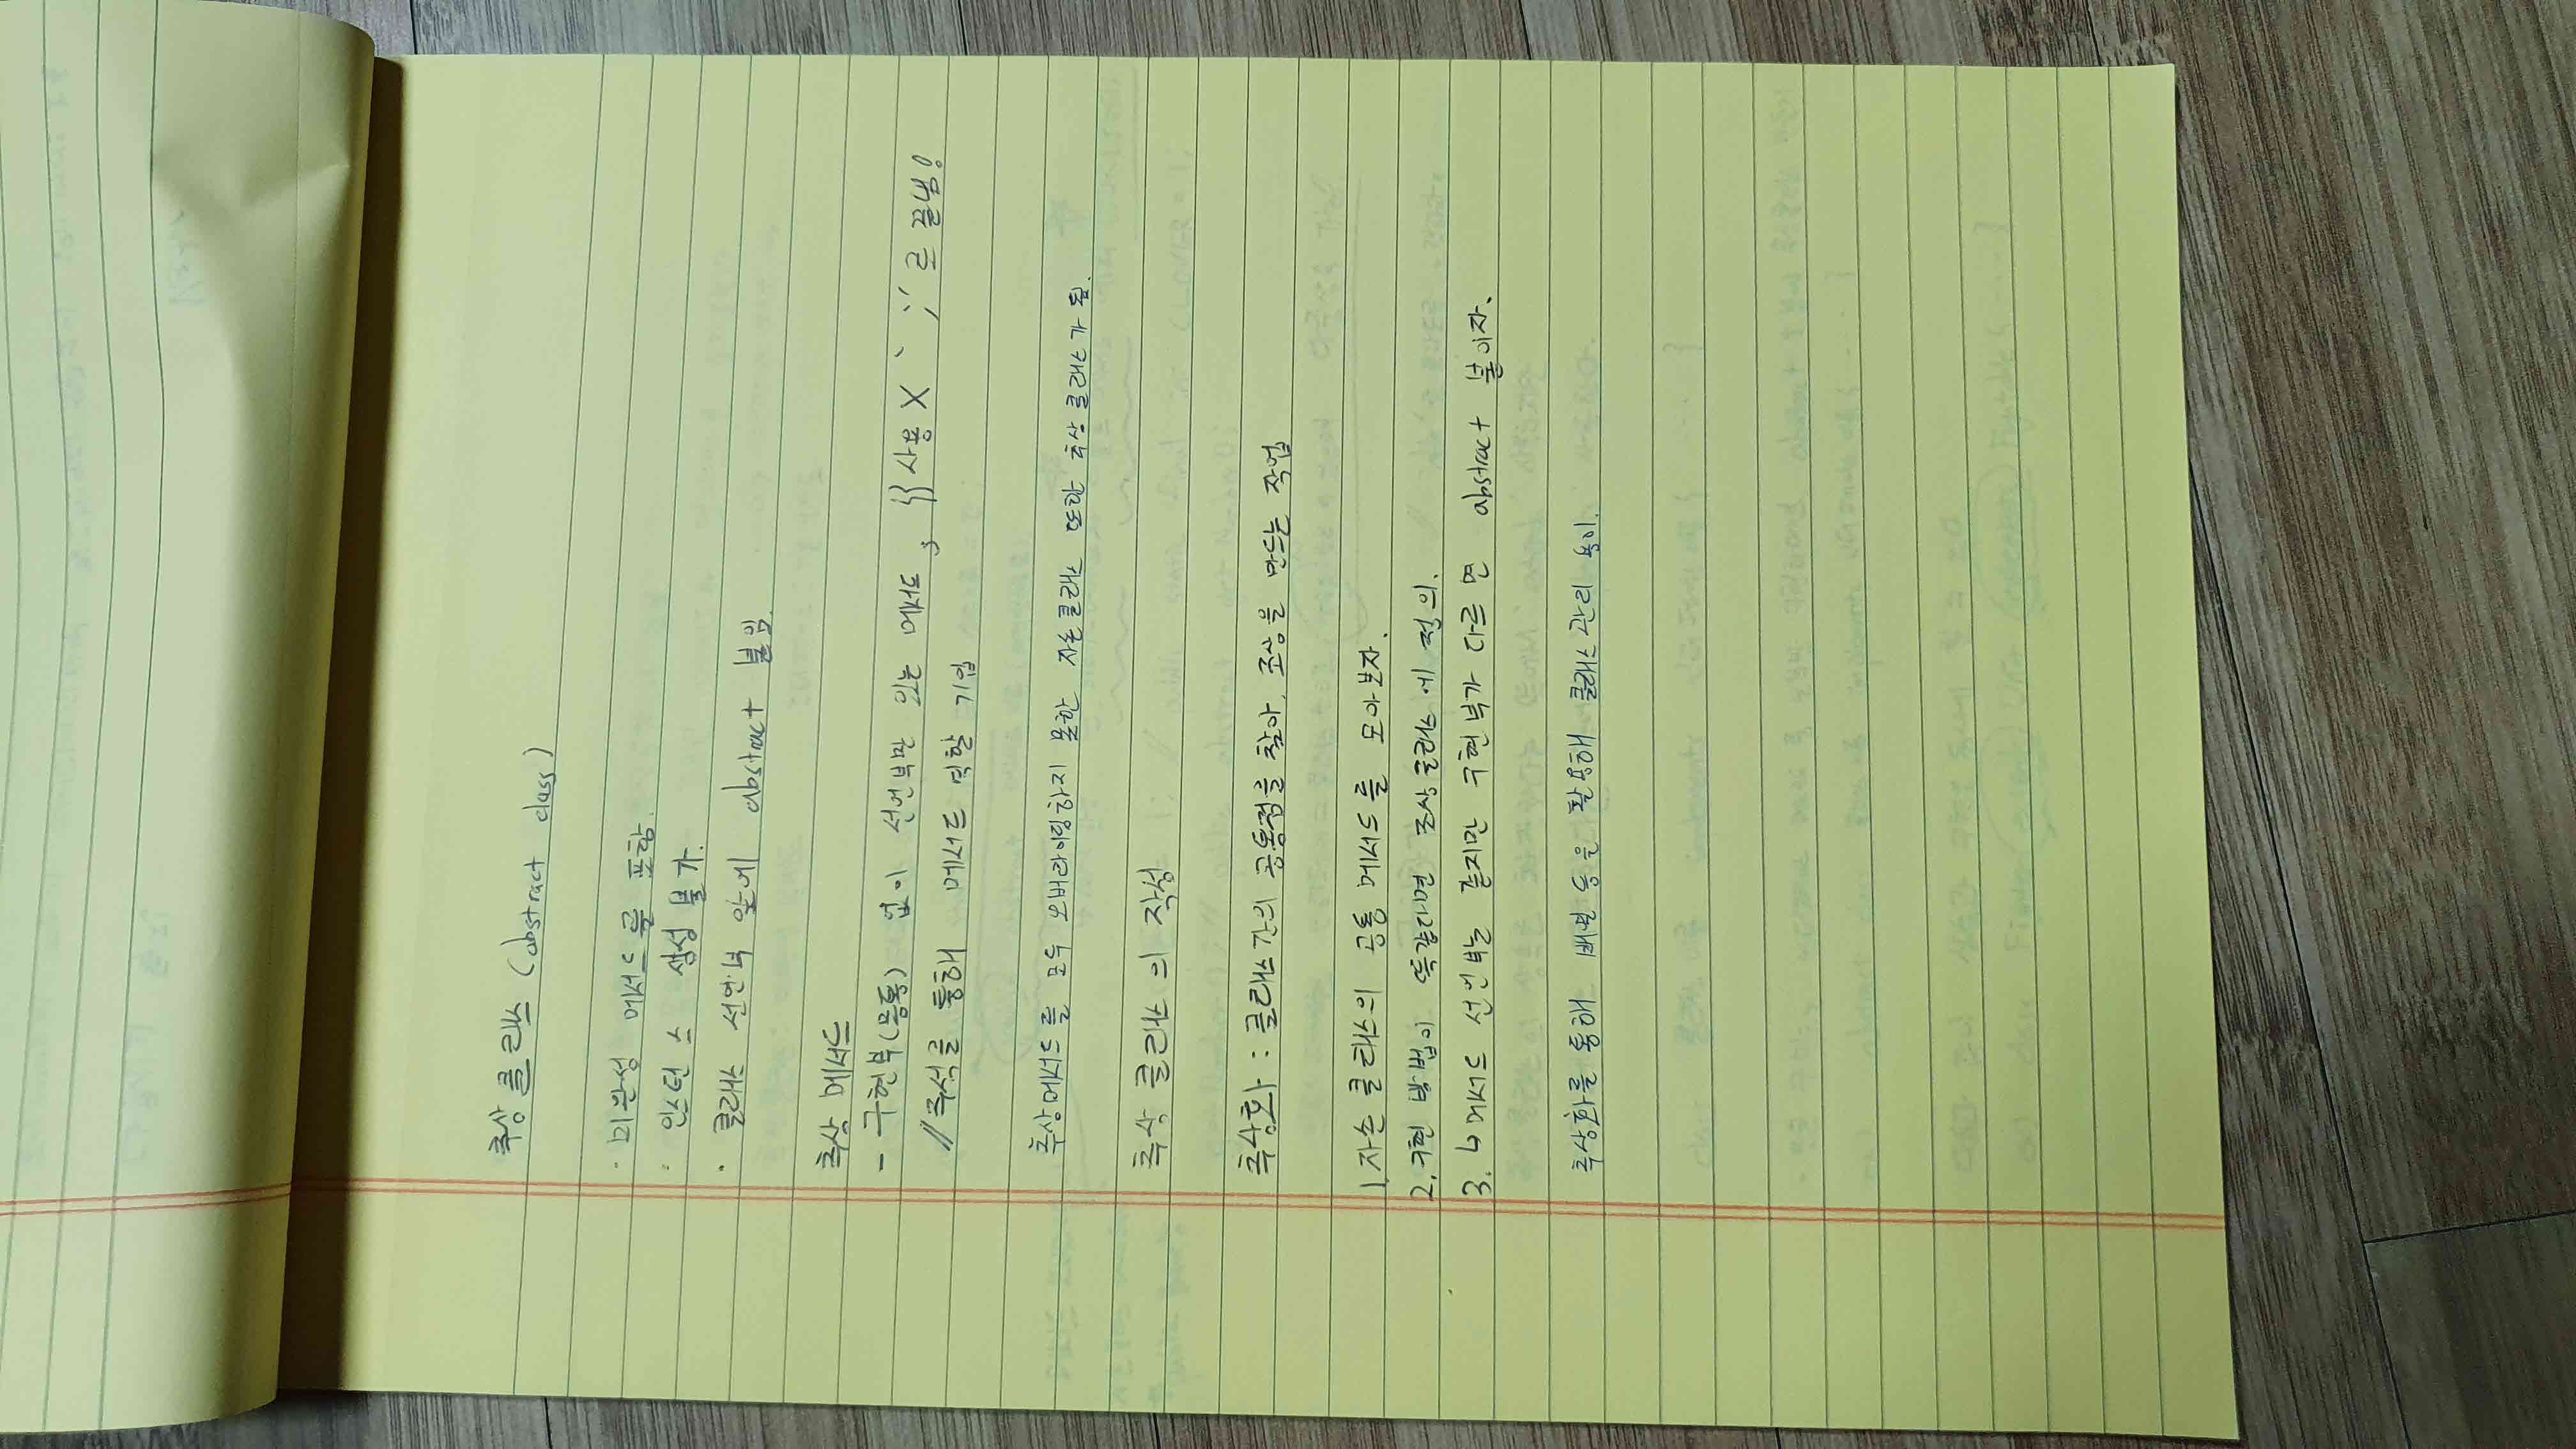 추상 클래스 (abstract class)
· 미완성 메서드를 포함.
· 인스턴스 생성 불가.
· 클래스 선언부 앞에 abstract 붙임.
추상 메서드
- 구현부(몸통) 없이 선언부만 있는 메서드, {} 사용 X ' ; ' 로 끝냄!
// 주석을 통해 메서드 역할 기입
추상메서드를 모두 오버라이딩하지 못한 자손클래스 또한 추상클래스가 됨.
추상 클래스의 작성
추상화 : 클래스간의 공통점을 찾아, 조상을 만드는 작업
1. 자손 클래스의 공통 메서드를 모아보자.
2. 구현 방법이 똑같다면 조상클래스에 정의.
3. ↳ 메서드 선언부는 같지만 구현부가 다르면 abstract 붙이자.
추상화를 통해 배열 등을 활용해 클래스관리 용이.